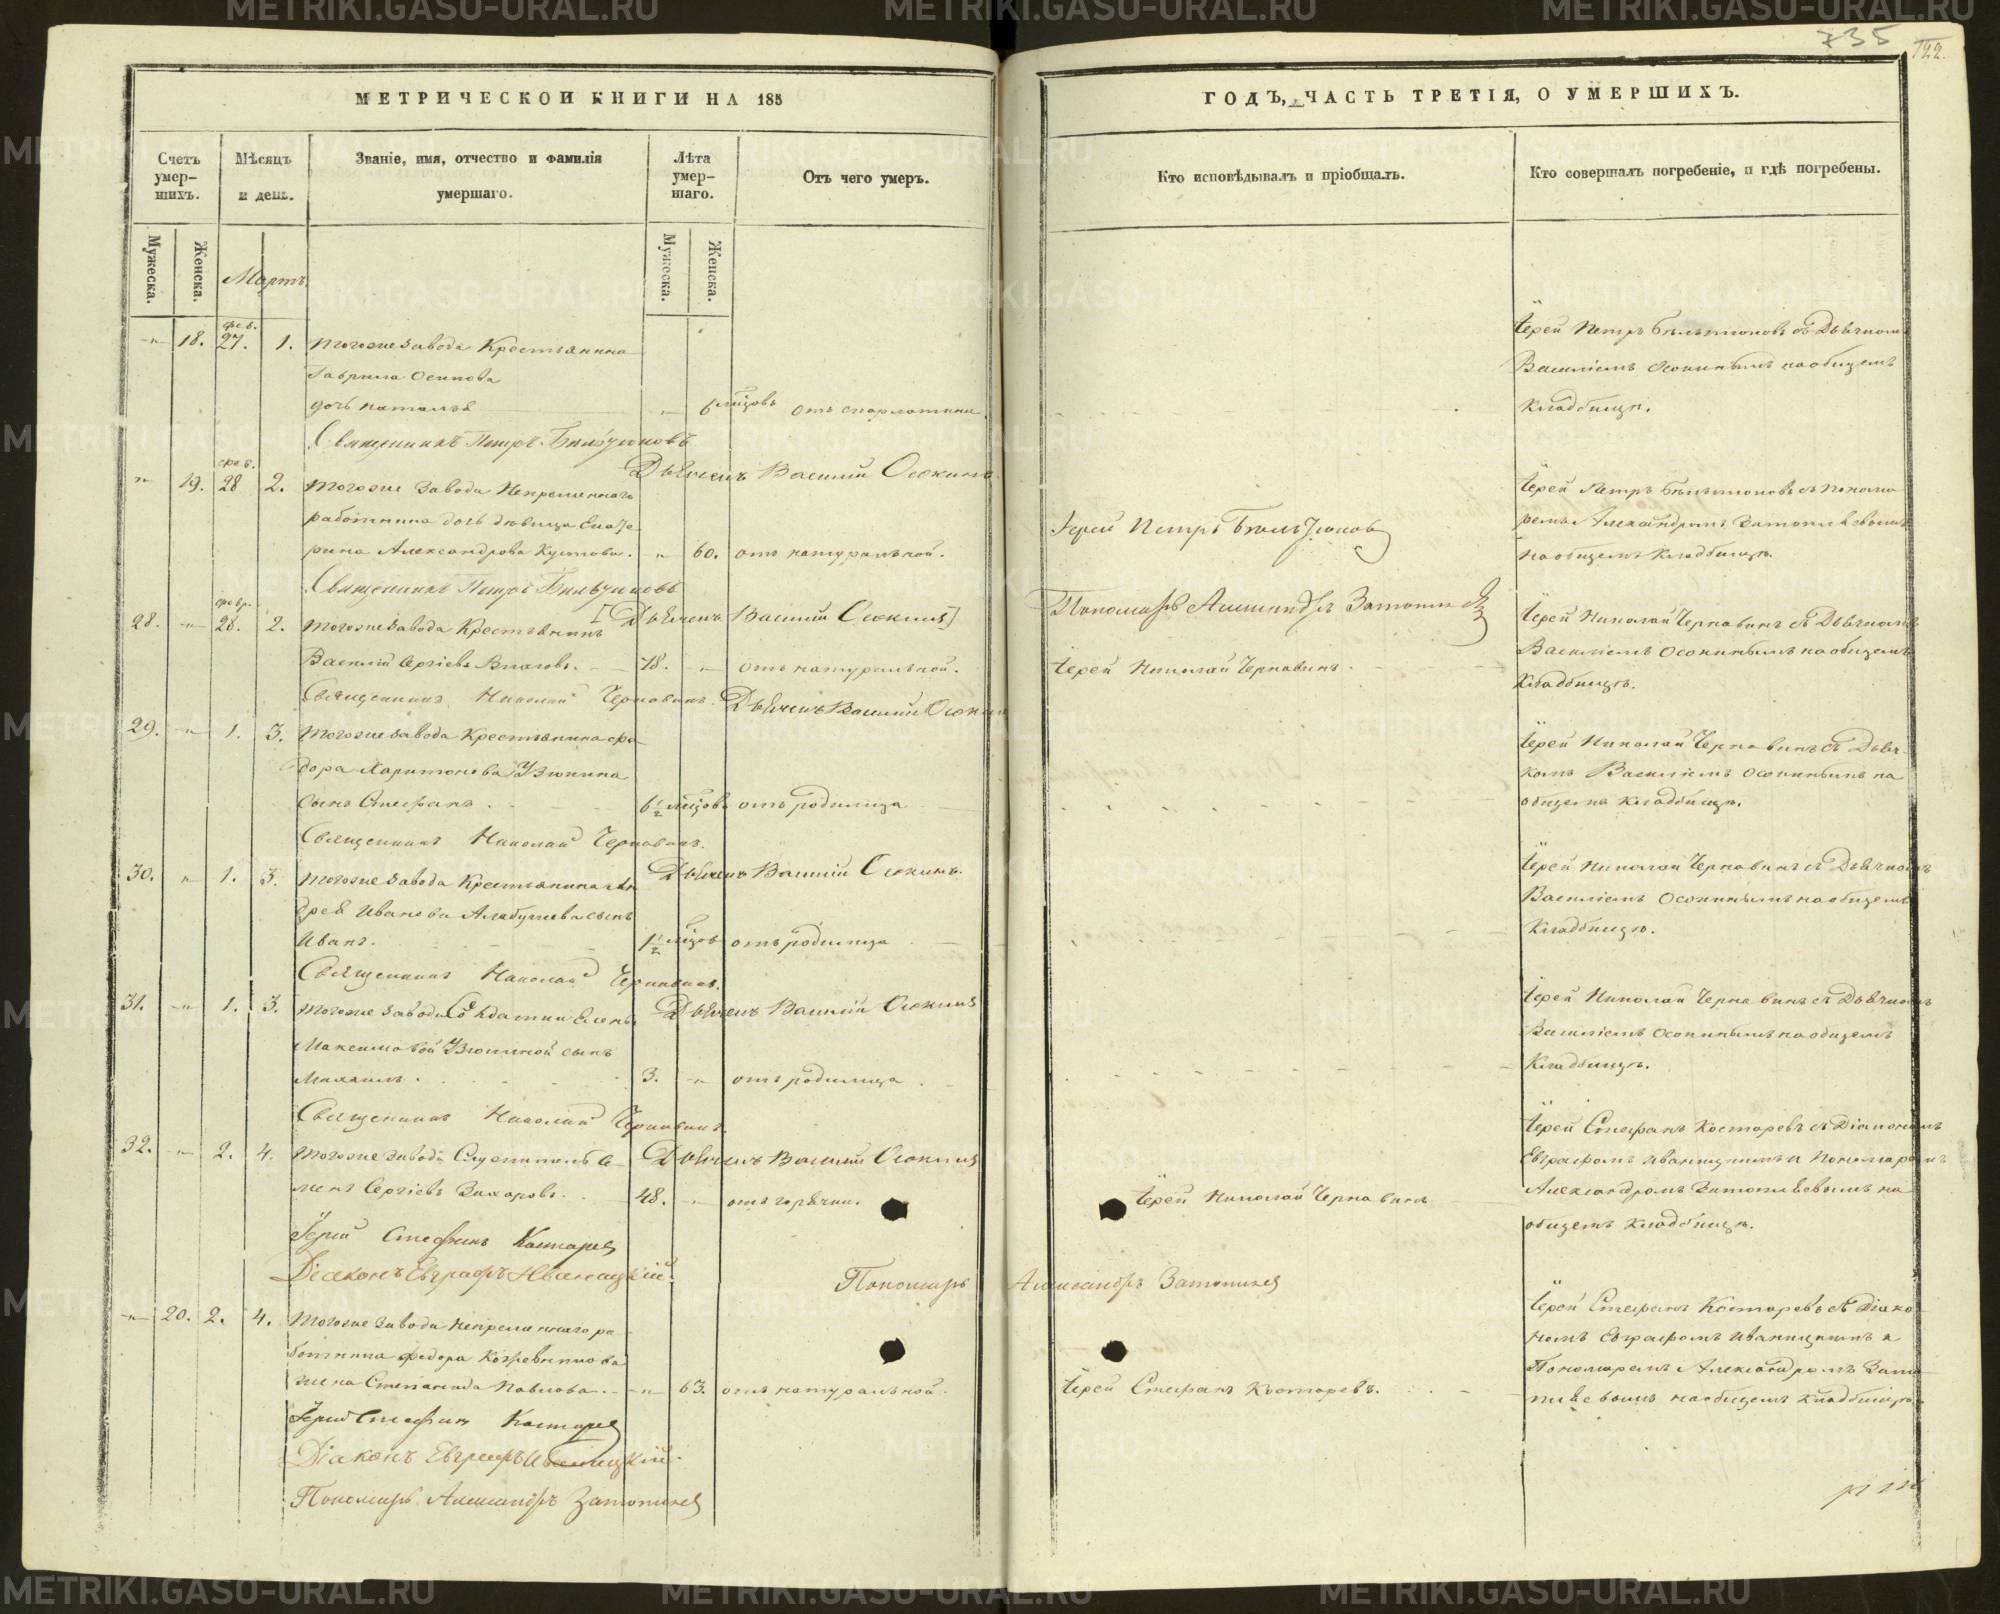 МЕТРИЧЕСКОЙ КНИГИ НА 185
Счетъ умер-шихъ.
Мѣсяцъ и день.
Званіе, имя, отчество и фамилія умершаго.
Лѣта умер-шаго.
Отъ чего умеръ.
Мужеска.
Женска.
Мужеска.
Женска.
Мартъ
фев.
18. 27. 1. тогоже завода Крестьянина
Гаврила Осипова
дочь наталья 6 мѣцовъ отъ скарлатины
Священникъ Петръ
Дьячекъ Василій Осокинъ
фев.
19. 28 2. тогоже Завода Непременнаго
работника дочь девица Екате
рина Александрова Кустова. 60. отъ натуральной.
Священникъ Петръ
Дьячекъ Василій Осокинъ
февр.
28. 28. 2. тогоже завода Крестьянинъ
Василій Сергіевъ 78. отъ натуральной.
Священникъ Николай Чернавинъ Дьячекъ Василій Осокинъ
29. 1. 3. тогоже завода Крестьянина Фе
дора Харитонова Узюнина
сынъ Стефанъ. 6 1/2 мѣцовъ отъ родимца
Священникъ Николай Чернавинъ.
Дьячекъ Василій Осокинъ.
30. 1. 3. тогоже завода Крестьянина Ан
дрея Иванова сынъ
Иванъ. 1 1/2 мѣцов отъ родимца
Священникъ Николай Чернавинъ.
Дьячекъ Василій Осокинъ
31. 1. 3. тогоже завода Солдатки Елены
Максимовой сынъ
Михаилъ. 3. отъ родимца
Священникъ Николай Чернавинъ.
Дьячекъ Василій Осокинъ
32. 2. 4. тогоже завода Служитель Се
менъ Сергіевъ Захаровъ. 48. отъ горячки.
Іерей Стефанъ Костарев
Діаконъ Евграфъ Иваницкій.
Пономарь Александръ
20. 2. 4. тогоже завода непременнаго ра
ботника Федора Кожевникова
жена Степанида Павлова. 63. отъ натуральной.
Іерей Стефанъ Костарев
Діаконъ Евграфъ Иваницкій.
Пономарь Александръ
735
122.
ГОДЪ, ЧАСТЬ ТРЕТІЯ, О УМЕРШИХЪ.
Кто исповѣдывалъ и пріобщалъ.
Кто совершалъ погребеніе, и гдѣ погребены.
Іерей Петръ съ Дьячкомъ
Василіемъ Осокинымъ на общемъ
Кладбищѣ.
Іерей Петръ
Іерей Петръ съ понома
ремъ Александромъ
на общемъ Кладбищѣ.
Пономарь Александръ
Іерей Николай Чернавинъ съ Дьячкомъ
Василіемъ Осокинымъ на общемъ
Кладбищѣ.
Іерей Николай Чернавинъ.
Іерей Николай Чернавинъ съ Дьяч
комъ Василіемъ Осокинымъ на
общемъ Кладбищѣ.
Іерей Николай Чернавинъ съ Дьячкомъ
Василіемъ Осокинымъ на общемъ
Кладбищѣ.
Іерей Николай Чернавинъ съ Дьячкомъ
Василіемъ Осокинымъ на общемъ
Кладбищѣ.
Іерей Николай Чернавинъ
Іерей Стефанъ Костаревъ съ Діакономъ
Евграфомъ Иваницкимъ и Пономаремъ
Александромъ на
общемъ кладбищѣ.
Іерей Стефанъ Костаревъ.
Іерей Стефанъ Костаревъ съ Діако
номъ Евграфомъ Иваницкимъ и
Пономаремъ Александромъ
на общемъ кладбищѣ
METRIKI.GASO-URAL.RU